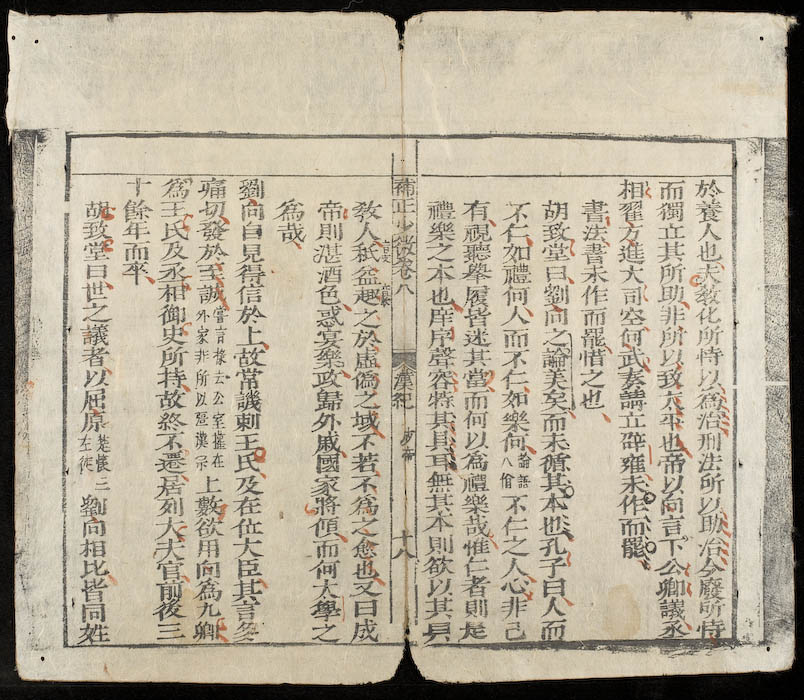 於養人也夫敎化所恃以爲治刑法所以助治今廢所恃
而獨立其所助非所以致太平也帝以向言下公卿議丞
相翟方進大司空何武奏請立辟雍未作而罷
書法書未作而罷惜之也
胡致堂曰劉向之論美矣而未循其本也孔子曰人而
不仁如禮何人而不仁如樂何論語八佾不仁之人心非己
有視聽擧履皆迷其當而何以爲禮樂哉惟仁者則是
禮樂之本也庠序聲容特其具耳無其本則欲以其具
補正少微卷八 漢紀 成帝 十八
敎人秪益趣之於虛僞之域不若不爲之愈也又曰成
帝則湛酒色惑宴樂政歸外戚國家將傾而何太學之
爲哉
劉向自見得信於上故常譏刺王氏及在位大臣其言多
痛切發於至誠嘗言祿去公室權在外家非所以强漢宗上數欲用向爲九卿
爲王氏及丞相御史所持故終不遷居列大夫官前後三
十餘年而卒
胡致堂曰世之議者以屈原楚懷王左徒劉向相比皆同姓